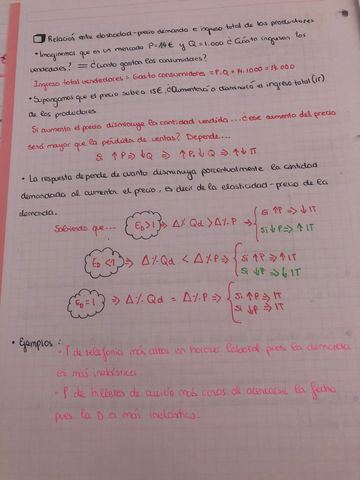 Relación entre elasticidad-precio demanda e ingreso total de los productores
• Imaginemos que en un mercado P=14€ y Q=1.000 ¿Cuánto ingresan los
vendedores? = ¿Cuánto gastan los consumidores?
Ingreso total vendedores = Gasto consumidores = P.Q = 14.1000 = 14.000
• Supongamos que el precio sube a 15€. ¿Aumentará o disminuirá el ingreso total (IT)
de los productores
Si aumenta el precio disminuye la cantidad vendida... ¿ese aumento del precio
será mayor que la pérdida de ventas? Depende...
Si ↑P ⇒ ↓Q ⇒ ↑P, ↓Q ⇒ ↑↓ IT
• La respuesta depende de cuanto disminuya porcentualmente la cantidad
demandada al aumentar el precio, es decir de la elasticidad-precio de la
demanda.
Sabiendo que...
ED>1 ⇒ Δ% Qd > Δ% P ⇒ { Si ↑P ⇒ ↓ IT
Si ↓P ⇒ ↑ IT
ED<1 ⇒ Δ% Qd < Δ% P ⇒ { Si ↑P ⇒ ↑ IT
Si ↓P ⇒ ↓ IT
ED=1 ⇒ Δ% Qd = Δ% P ⇒ { Si ↑P ⇒ IT
Si ↓P ⇒ IT
• Ejemplos:
- P de telefonía más altos en horario laboral pues la demanda
es más inelástica
- P de billetes de avión más caros al acercarse la fecha
pues la D es más inelástica.